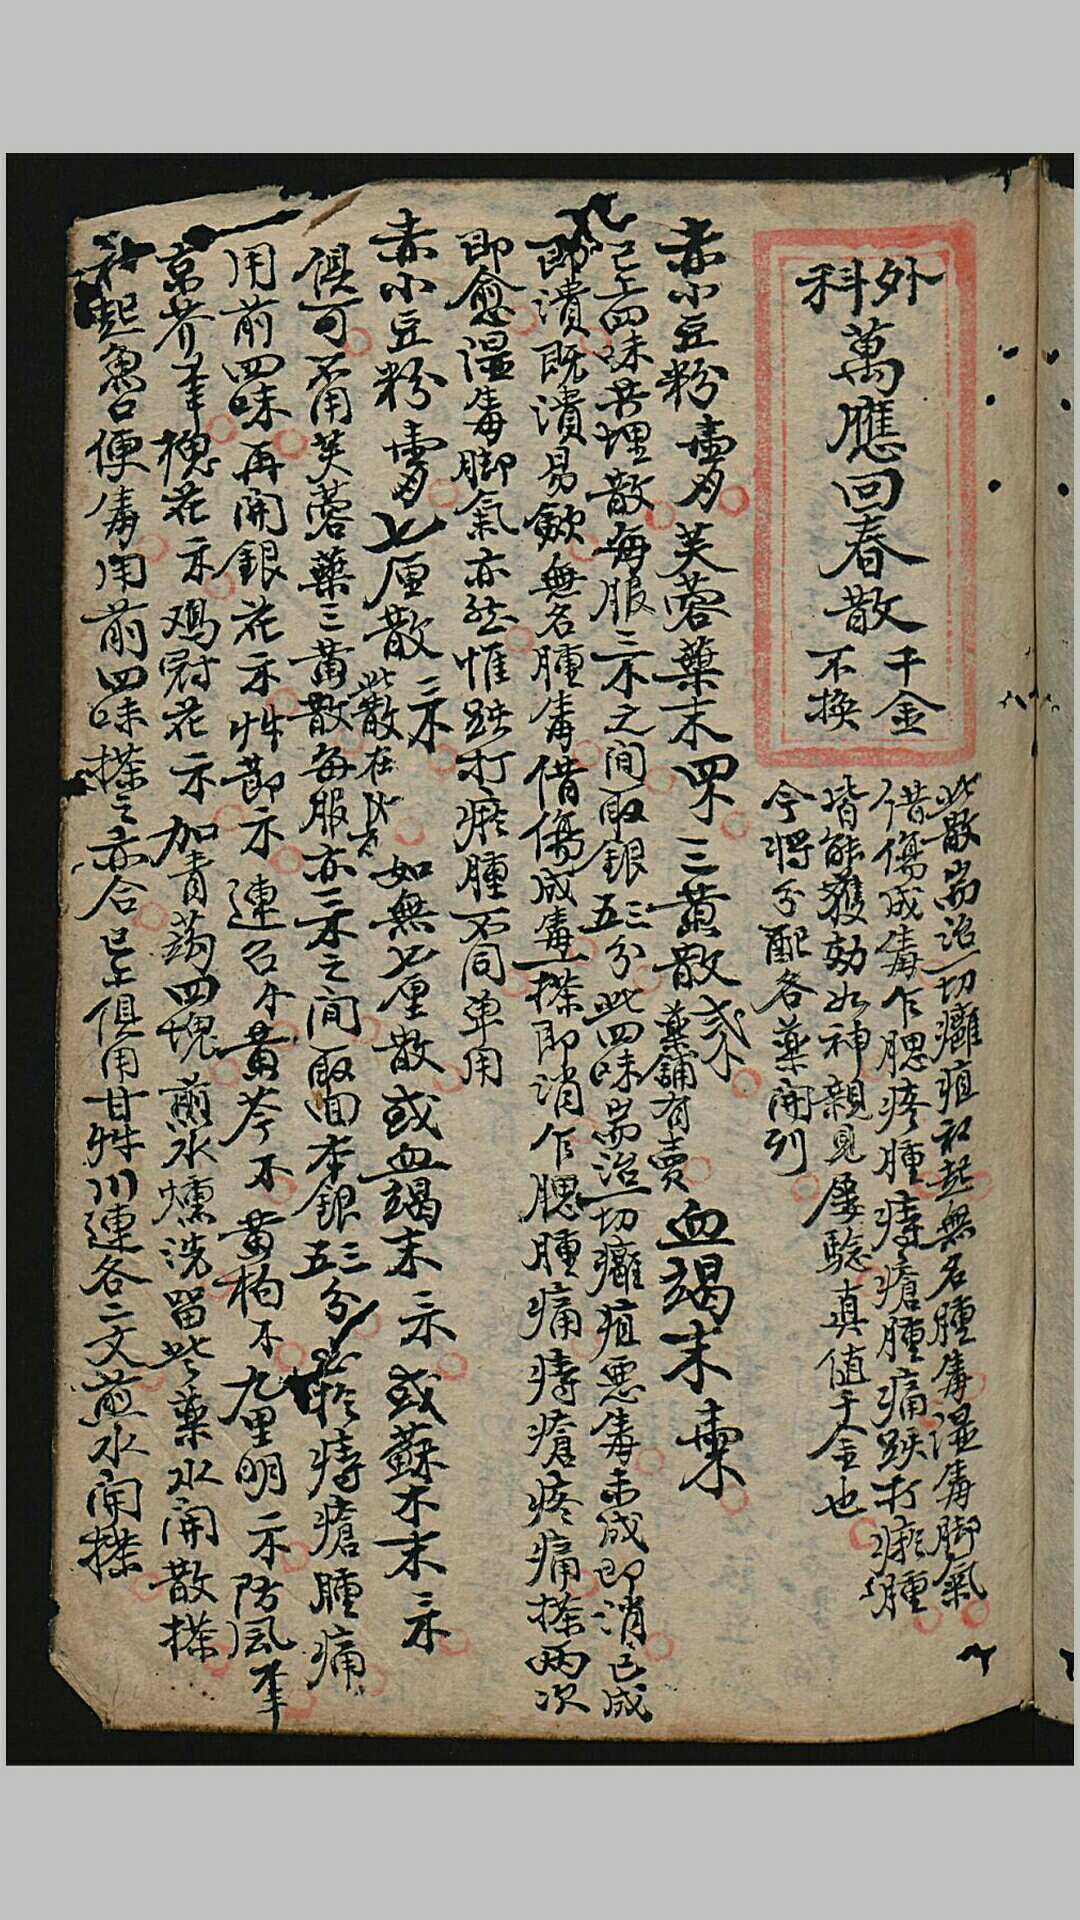 外科
萬應回春散
千金不換
此散耑治一切癰疽初起無名腫毒濕毒脚氣
借傷成毒乍腮疼腫痔瘡腫痛跌打瘀腫
皆能獲効如神親見屢驗真值千金也
今將分配各藥開列
赤小豆粉 芙蓉藥末 三黃散 藥舖有賣 血竭末
已上四味共埋散每服三 之間取銀三五分此四味耑治一切癰疽惡毒未成即消已成
即潰既潰易歛無名腫毒借傷成毒一搽即消乍腮腫痛痔瘡疼痛搽两次
即愈濕毒脚氣亦然惟跌打瘀腫不同单用
赤小豆粉 七厘散 此散在 如無七厘散或血竭末 或蘇木末
俱可不用芙蓉藥三黃散每服亦三 之間取回本銀三五分 必於痔瘡腫痛
用前四味再開銀花 艸節 連召 黃芩 黃柏 九里明 防風
京芥 槐花 鸡冠花 加青蒟四塊煎水燻洗留些藥水開散搽
初起魚口便毒用前四味搽之亦合已上俱用甘艸川連各二文煎水開搽